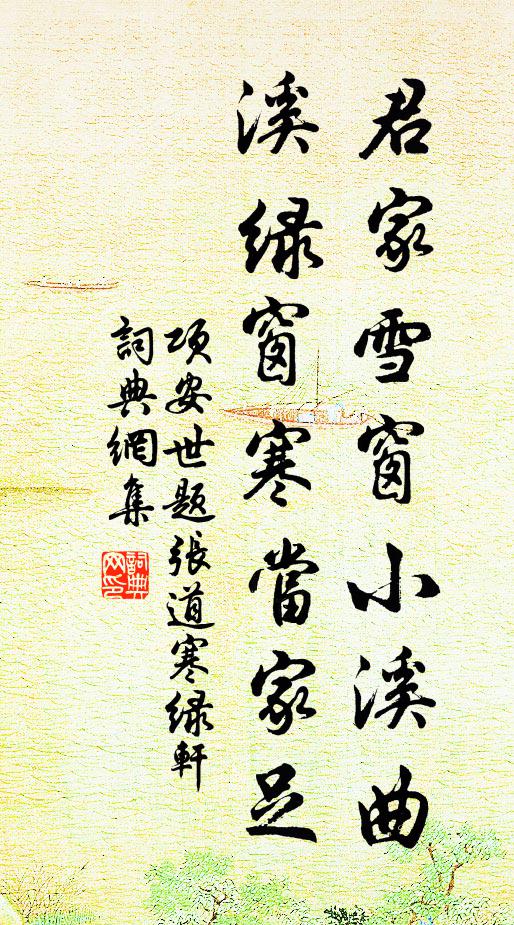 君家雪窗小溪曲
溪绿窗寒當家足
项安世题張道寒绿軒
詞典網集
詞典
网印